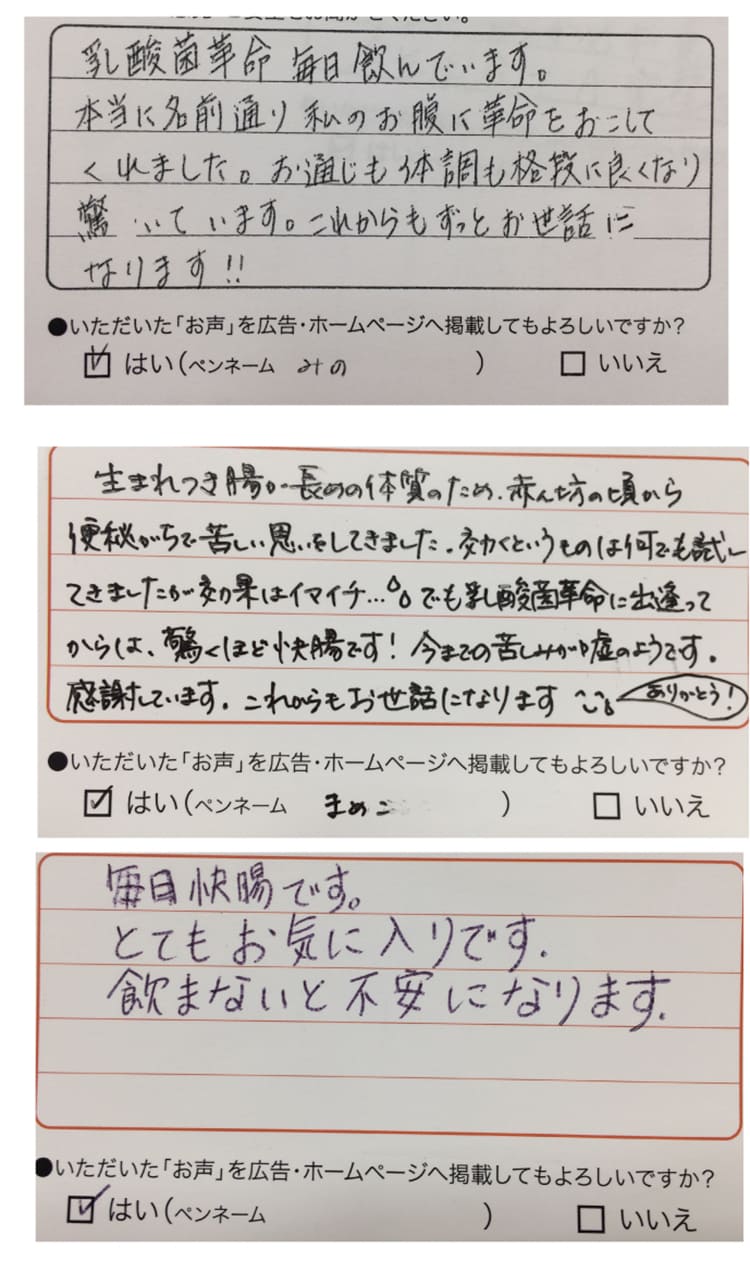 乳酸菌革命 毎日飲んでいます。
本当に名前通り 私のお腹に革命をおこして
くれました。お通じも体調も格段に良くなり
驚いています。これからもずっとお世話に
なります!!
●いただいた「お声」を広告・ホームページへ掲載してもよろしいですか?
はい(ペンネーム みの ) いいえ
生まれつき腸が長めの体質のため、赤ん坊の頃から
便秘がちで苦しい思いをしてきました。効くというものは何でも試し
てきましたが効果はイマイチ...でも乳酸菌革命に出逢って
からは、驚くほど快腸です!今までの苦しみが嘘のようです。
感謝しています。これからもお世話になります ありがとう!
●いただいた「お声」を広告・ホームページへ掲載してもよろしいですか?
はい(ペンネーム まめこ ) いいえ
毎日快腸です。
とてもお気に入りです.
飲まないと不安になります.
●いただいた「お声」を広告・ホームページへ掲載してもよろしいですか?
はい(ペンネーム ) いいえ